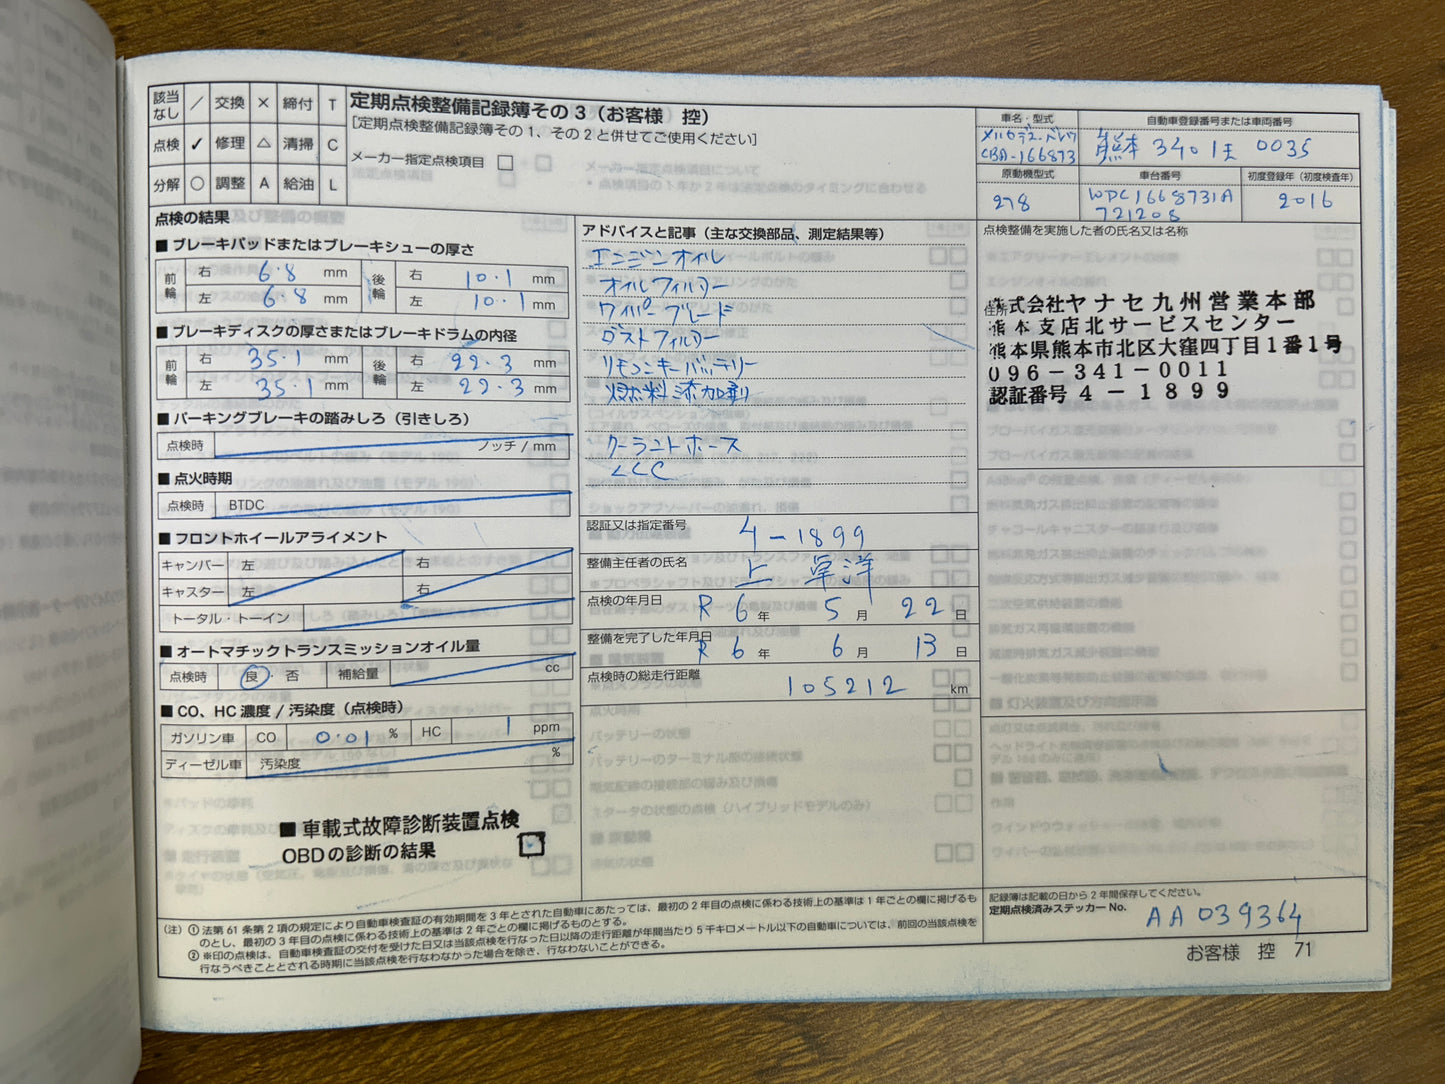 該当なし ／ 交換 × 締付 T
点検 ✓ 修理 △ 清掃 C
分解 ○ 調整 A 給油 L
定期点検整備記録簿その3（お客様　控）
［定期点検整備記録簿その1、その2と併せてご使用ください］
メーカー指定点検項目 □
車名・型式
CBA-166873
自動車登録番号または車両番号
熊本 340 0035
原動機型式
278
車台番号
WDC1668731A
721208
初度登録年（初度検査年）
2016
点検の結果
■ ブレーキパッドまたはブレーキシューの厚さ
前輪 右 6.8 mm 後輪 右 10.1 mm
左 6.8 mm 左 10.1 mm
■ ブレーキディスクの厚さまたはブレーキドラムの内径
前輪 右 35.1 mm 後輪 右 22.3 mm
左 35.1 mm 左 22.3 mm
■ パーキングブレーキの踏みしろ（引きしろ）
点検時 ノッチ / mm
■ 点火時期
点検時 BTDC
■ フロントホイールアライメント
キャンバー 左 右
キャスター 左 右
トータル・トーイン
■ オートマチックトランスミッションオイル量
点検時 良・否 補給量 cc
■ CO、HC濃度 / 汚染度（点検時）
ガソリン車 CO 0.01 % HC 1 ppm
ディーゼル車 汚染度 %
■ 車載式故障診断装置点検
OBDの診断の結果
アドバイスと記事（主な交換部品、測定結果等）
エンジンオイル
オイルフィルター
ワイパーブレード
ダストフィルター
リモコンキーバッテリー
燃料添加剤
クーラントホース
LCC
認証又は指定番号
4-1899
整備主任者の氏名
上 草洋
点検の年月日
R 6 年 5 月 22 日
整備を完了した年月日
R 6 年 6 月 13 日
点検時の総走行距離
105212 km
点検整備を実施した者の氏名又は名称
住所
株式会社ヤナセ九州営業本部
熊本支店北サービスセンター
熊本県熊本市北区大窪四丁目1番1号
096-341-0011
認証番号 4-1899
記録簿は記載の日から2年間保存してください。
定期点検済みステッカー No.
AA039364
（注）① 法第61条第2項の規定により自動車検査証の有効期間を3年とされた自動車にあたっては、最初の2年目の点検に係わる技術上の基準は1年ごとの欄に掲げるも
のとし、最初の3年目の点検に係わる技術上の基準は2年ごとの欄に掲げるものとする。
② ※印の点検は、自動車検査証の交付を受けた日又は当該点検を行なった日以降の走行距離が年間当たり5千キロメートル以下の自動車については、前回の当該点検を
行なうべきこととされる時期に当該点検を行なわなかった場合を除き、行なわないことができる。
お客様　控　71